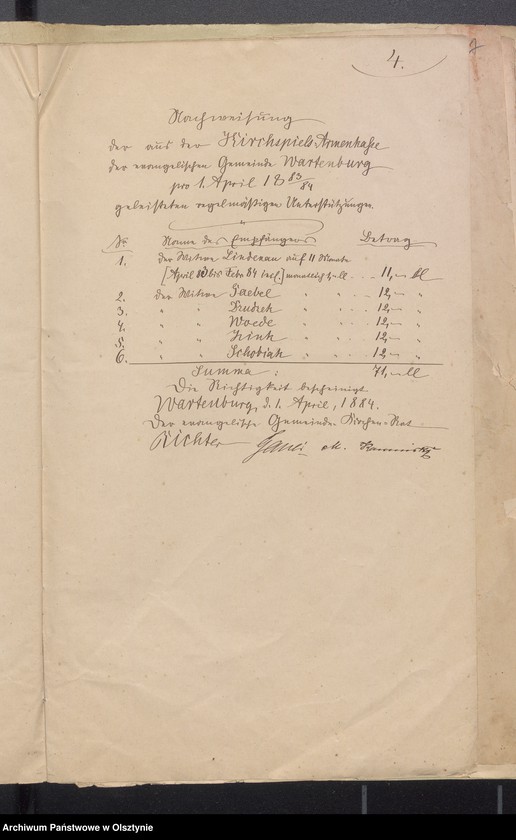 4.
Nachweisung
der aus der Kirchspiels-Armenkasse
der evangelischen Gemeinde Wartenburg
pro 1. April 1883/84
geleisteten regelmäßigen Unterstützungen.
No Name des Empfängers Betrag
1. Der Witwe Lindenau auf 11 Monate
[April 83 bis Febr. 84 incl.] monatlich 1 M. . . 11,— M
2. der Witwe Gaebel " " . . 12,— "
3. " " " " . . 12,— "
4. " " Woede " " . . 12,— "
5. " " Zink " " . . 12,— "
6. " " Schobiak " " . . 12,— "
Summa : 71,— M
Die Richtigkeit bescheinigt
Wartenburg, d. 1. April, 1884.
Der evangelische Gemeinde-Kirchen-Rat
Richter
Archiwum Państwowe w Olsztynie